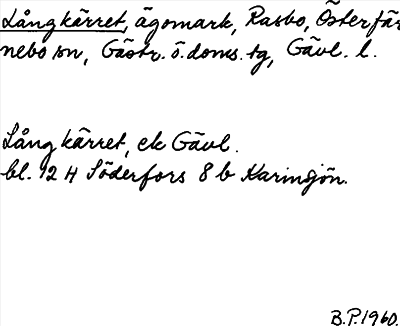 Långkärret, ägomark, Rasbo, Österfär
nebo sn, Gästr. ö. doms. tg, Gävl. l.
Långkärret, ek Gävl.
bl. 12 H Söderfors 8 b Karinsjön.
B.P. 1960.